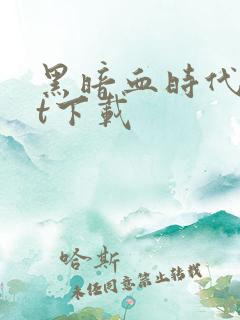 黑暗血時代
t下載
哈斯
未經同意禁止轉載